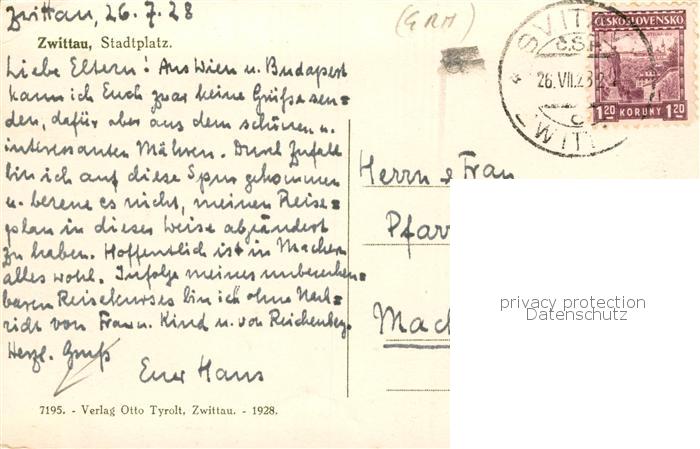 Zwittau, 26.7.28
(GRM)
Zwittau, Stadtplatz.
Liebe Eltern! Aus Wien u. Budapest
kann ich Euch zwar keine Grüße sen=
den, dafür aber aus dem schönen u.
interessanten Mähren. Durch Zufall
bin ich auf diese Spur gekommen
u. bereue es nicht, meinen Reise=
plan in dieser Weise abgeändert
zu haben. Hoffentlich ist in Machern
alles wohl. Infolge meines unberechen=
baren Reisekurses bin ich ohne Nach=
richt von Frau u. Kind u. von Reichenberg.
Herzl. Gruß
Euer Hans
7195. - Verlag Otto Tyrolt, Zwittau. - 1928.
SVITAVY
Č.S.R.
26.VII.28
ČESKOSLOVENSKO
1 20 KORUNY 1 20
Herrn & Frau
Pfarr
Mach
privacy protection
Datenschutz